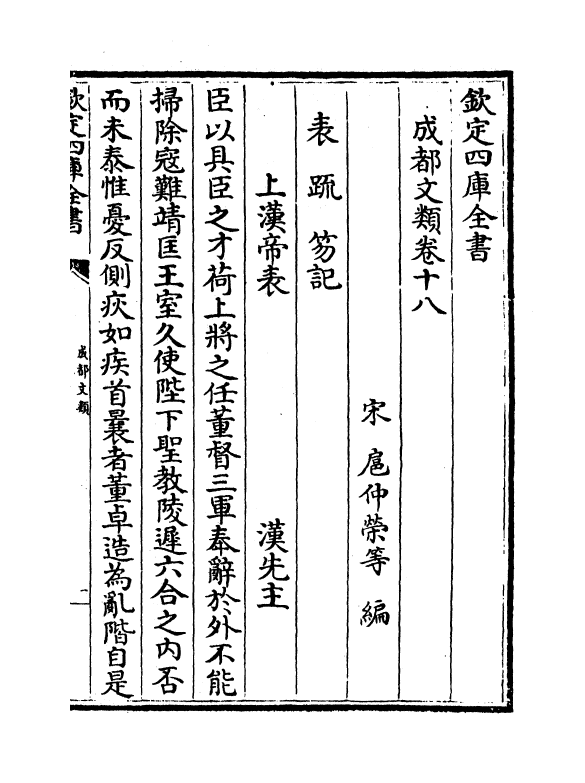 欽定四庫全書
成都文類卷十八
宋 扈仲榮等 編
表 疏 笏記
上漢帝表 漢先主
臣以具臣之才荷上將之任董督三軍奉辭於外不能
掃除冦難靖匡王室久使陛下聖教陵遲六合之内否
而未泰惟憂反側疢如疾首曩者董卓造為亂階自是
欽定四庫全書
成都文類
一